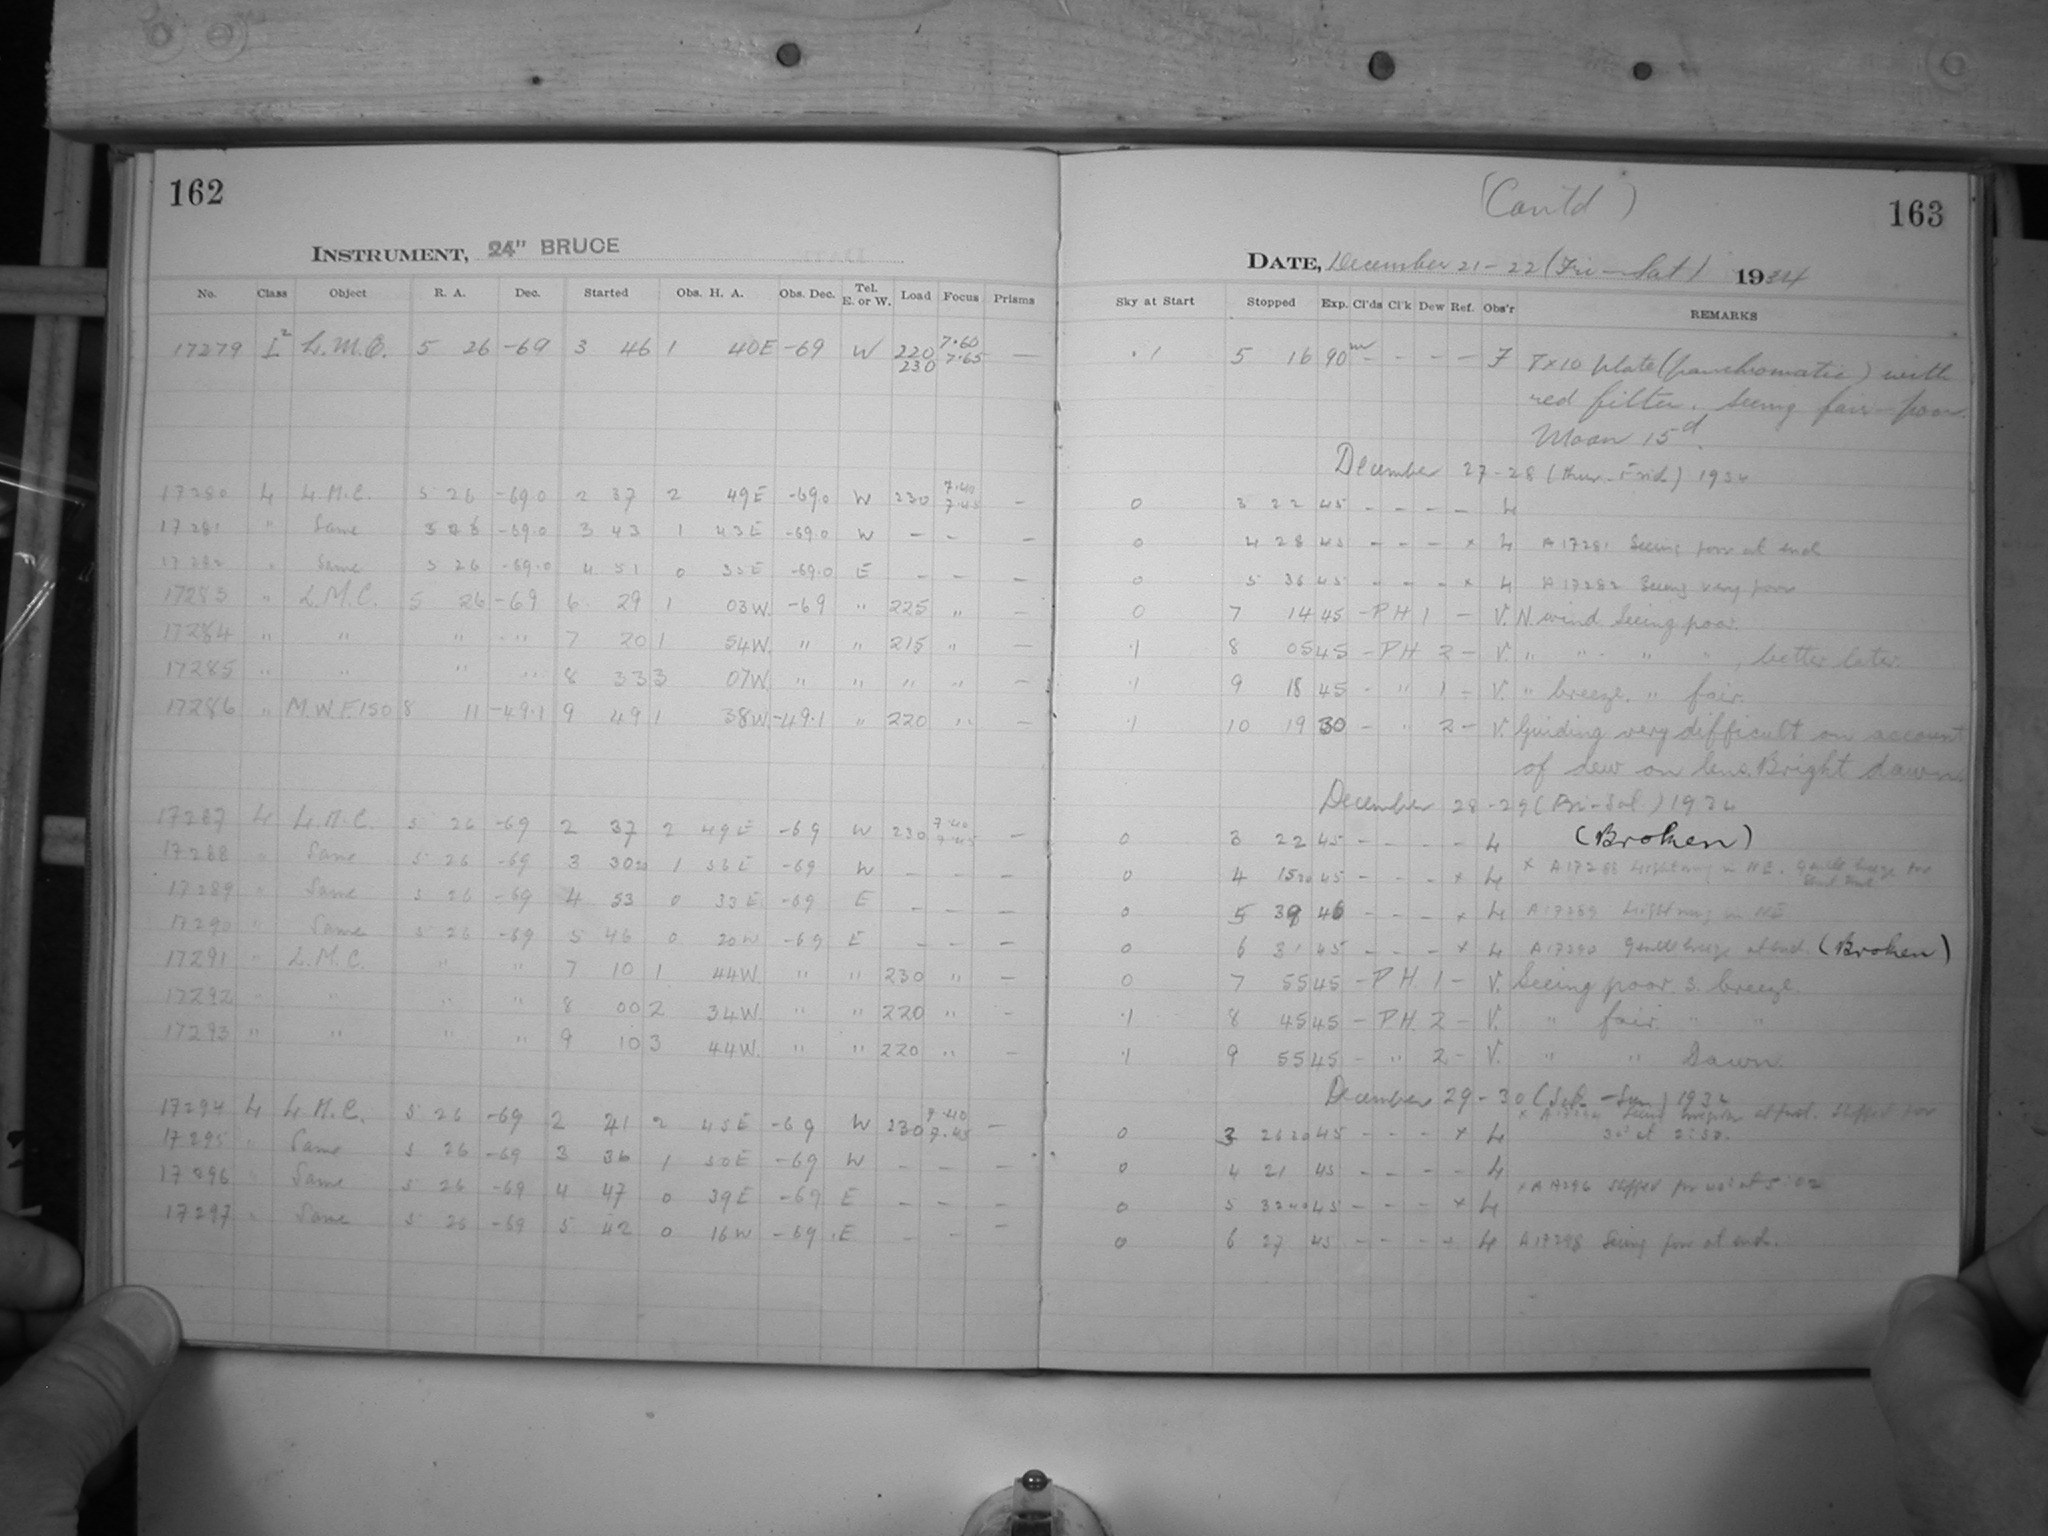 162
INSTRUMENT, 24" BRUCE
No. Class Object R. A. Dec. Started Obs. H. A. Obs. Dec. Tel. E. or W. Load Focus Prisms
17279 I² L.M.C. 5 26 -69 3 46 1 40E -69 W 220 7.60 —
230 7.65
17280 L L.M.C. 5 26 -69.0 2 37 2 49E -69.0 W 230 7.40 —
7.45
17281 " Same 5 26 -69.0 3 43 1 43E -69.0 W - - -
17282 " Same 5 26 -69.0 4 51 0 35E -69.0 E - - -
17283 " L.M.C. 5 26 -69 6 29 1 03W. -69 " 225 " -
17284 " " " " 7 20 1 54W. " " 215 " -
17285 " " " " 8 33 3 07W. " " " " -
17286 " M.W.F.150 8 11 -49.1 9 49 1 38W. -49.1 " 220 " -
17287 L L.M.C. 5 26 -69 2 37 2 49E -69 W 230 7.40 —
7.45
17288 " Same 5 26 -69 3 30 20 1 56E -69 W - - -
17289 " Same 5 26 -69 4 53 0 33E -69 E - - -
17290 " Same 5 26 -69 5 46 0 20W -69 E - - -
17291 " L.M.C. " " 7 10 1 44W. " " 230 " -
17292 " " " " 8 00 2 34W. " " 220 " -
17293 " " " " 9 10 3 44W. " " 220 " -
17294 L L.M.C. 5 26 -69 2 41 2 45E -69 W 230 7.40 —
7.45
17295 " Same 5 26 -69 3 36 1 50E -69 W - - -
17296 " Same 5 26 -69 4 47 0 39E -69 E - - -
17297 " Same 5 26 -69 5 42 0 16W -69 E - - -
(Cont'd)
163
DATE, December 21-22 (Fri-Sat) 1934
Sky at Start Stopped Exp. Cl'ds Cl'k Dew Ref. Obs'r REMARKS
.1 5 16 90m - - - - F 8x10 plate (panchromatic) with
red filter. Seeing fair-poor.
Moon 15d.
December 27-28 (Thur.-Frid) 1934
0 3 22 45 - - - - L
0 4 28 45 - - - x L A17281 Seeing poor at end
0 5 36 45 - - - x L A17282 Seeing very poor
0 7 14 45 - P.H 1 - V. N. wind. Seeing poor.
.1 8 05 45 - P.H 2 - V. " " " " , better later.
.1 9 18 45 - " 1 - V. " breeze. " fair.
.1 10 19 30 - " 2 - V. Guiding very difficult on account
of dew on lens. Bright dawn.
December 28-29 (Fri-Sat) 1934
0 3 22 45 - - - - L (Broken)
0 4 15 20 45 - - - x L x A17288 Lightning in NE. Gentle breeze
0 5 39 46 - - - x L A17289 Lightning in NE
0 6 31 45 - - - x L A17290 Gentle breeze at end. (Broken)
0 7 55 45 - P.H. 1 - V. Seeing poor. S. breeze.
.1 8 45 45 - P.H. 2 - V. " fair " "
.1 9 55 45 - " 2 - V. " " Dawn.
December 29-30 (Sat-Sun) 1934
0 3 26 20 45 - - - x L x A17294 Seeing irregular at first. Stopped for
0 4 21 45 - - - - L
0 5 32 40 45 - - - x L x A17296 Stopped for 40s at 5:02
0 6 27 45 - - - x L A17298 Seeing poor at end.